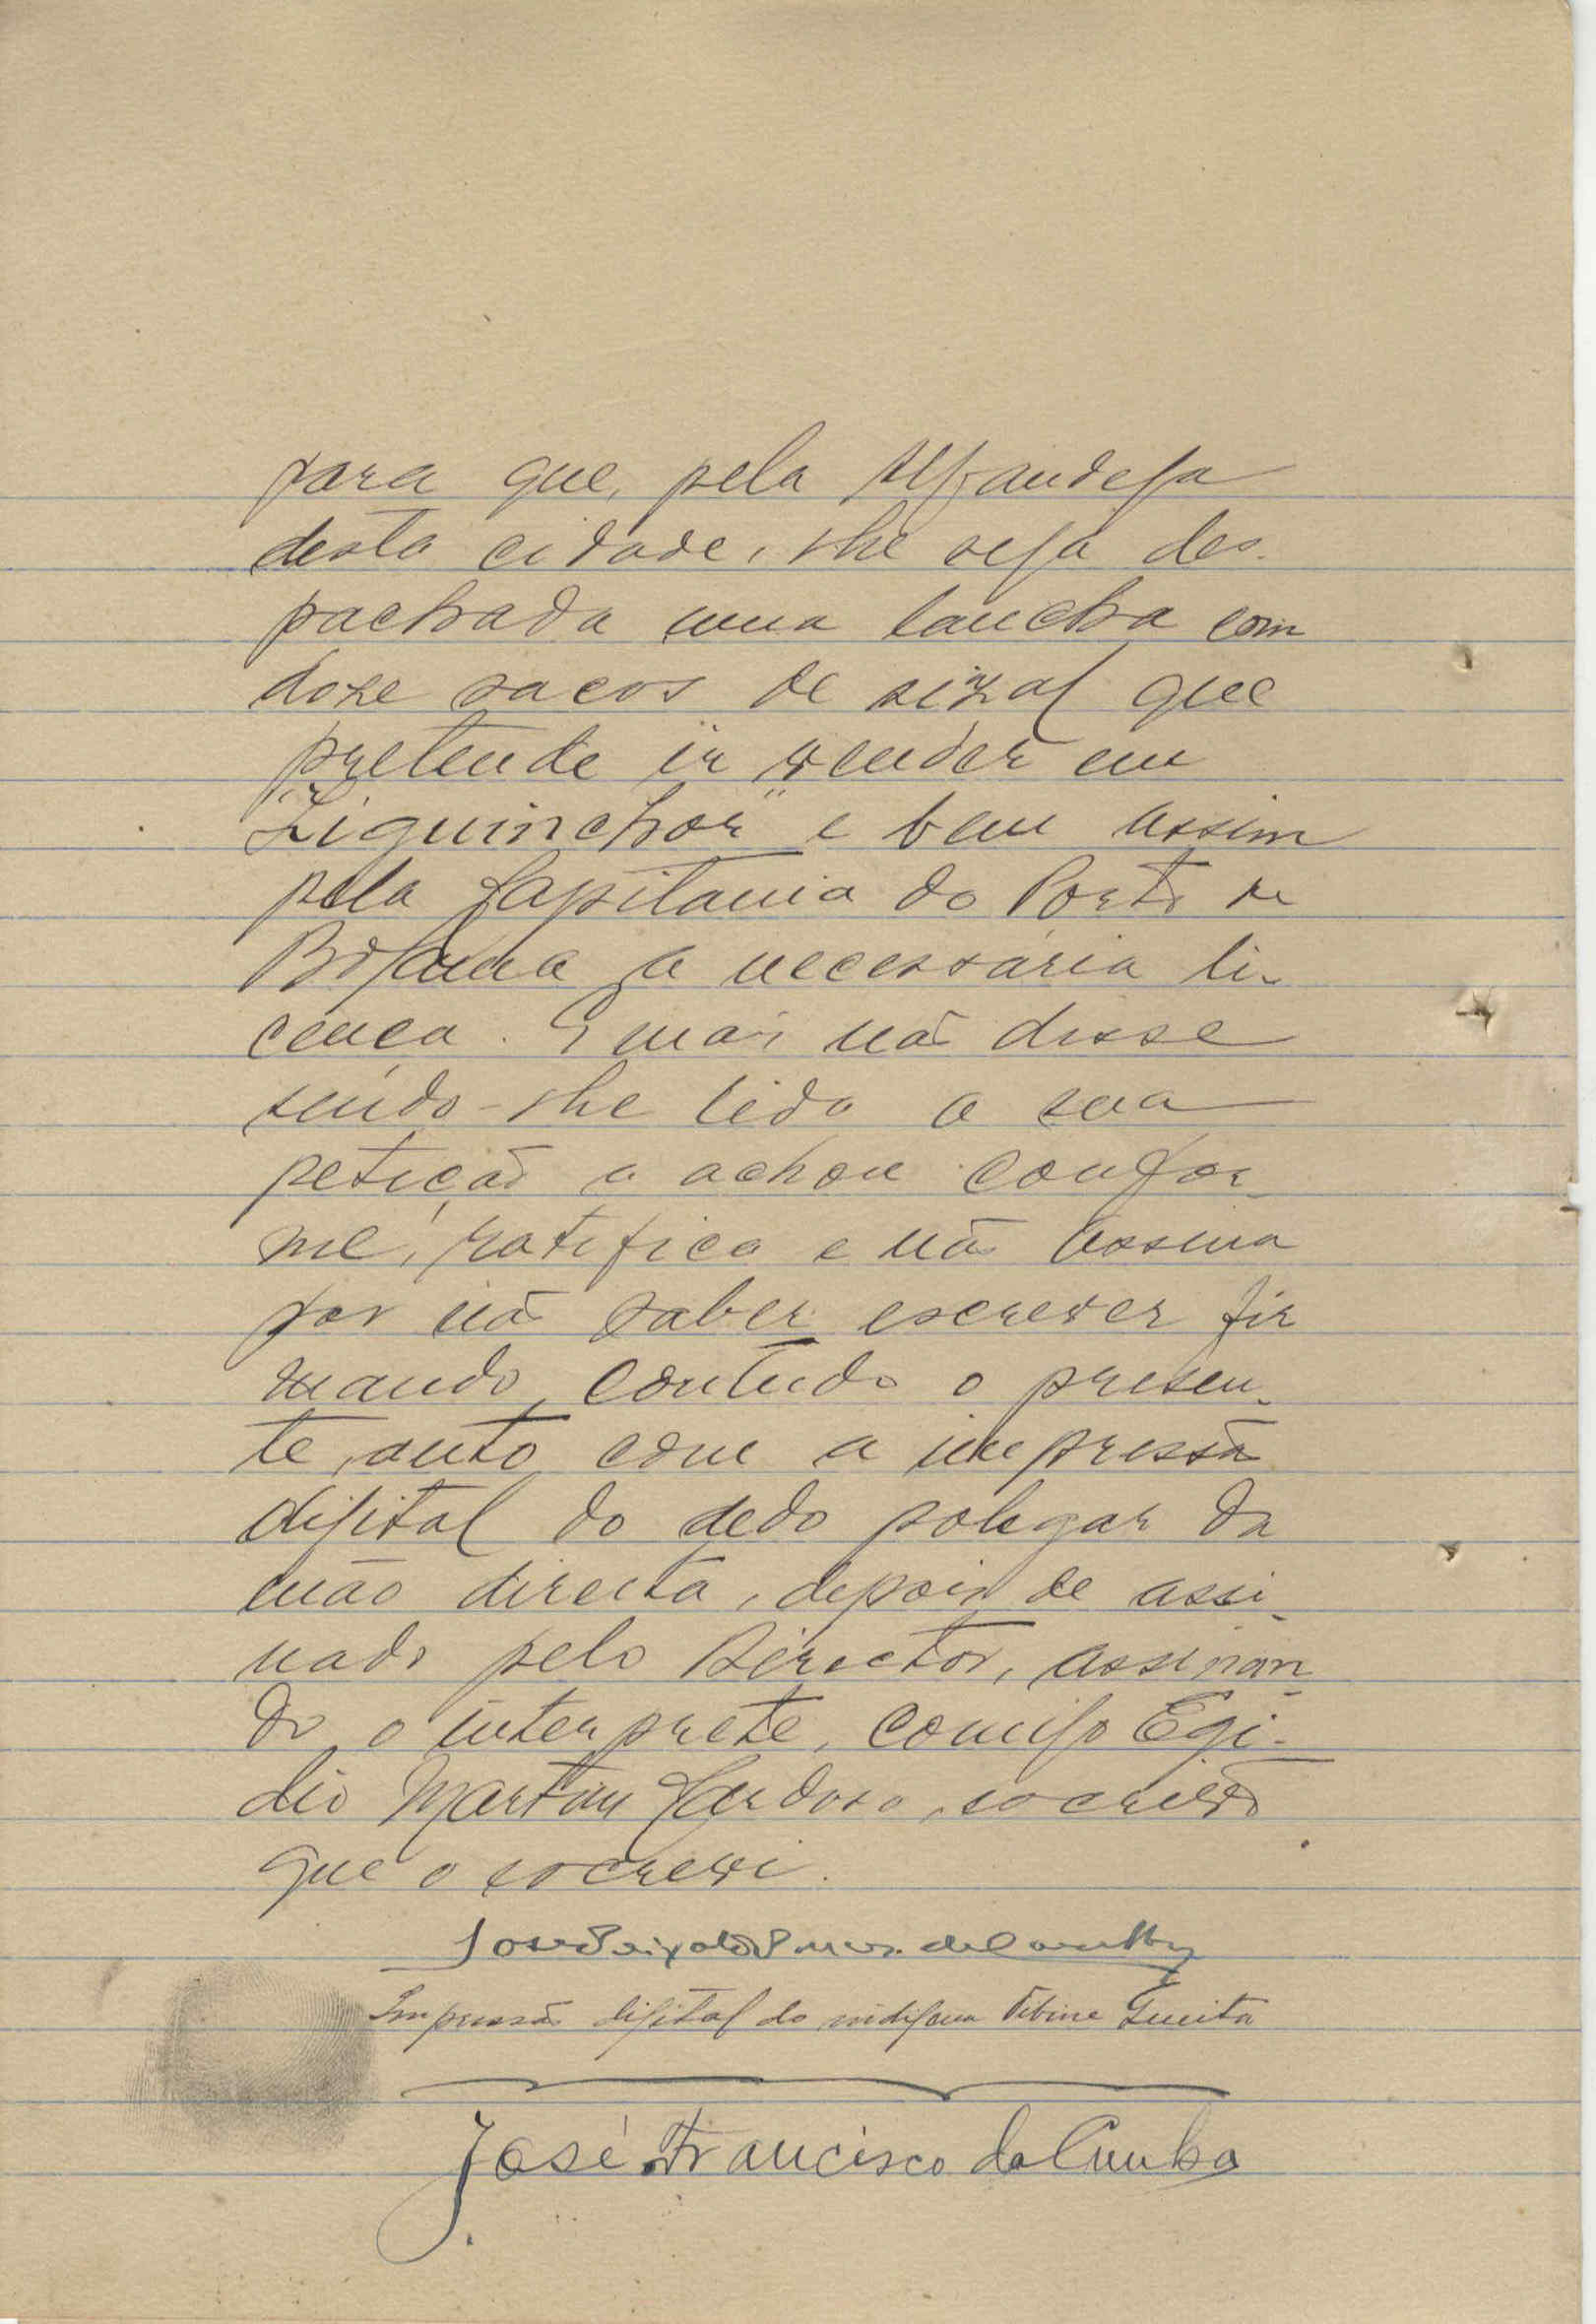 para que, pela Alfandega
desta cidade, lhe seja des-
pachada uma lancha com
doze sacos de sizal que
pretende ir vender em
"Ziguinchor" e bem assim
pela Capitania do Porto de
Bolama a necessária li-
cença. E mais não disse
sendo-lhe lido a sua
petição a achou confor-
me, ratifica e não assina
por não saber escrever fir
mando, contudo o presen-
te auto com a impressão
dijital do dedo polegar da
mão direita, depois de assi-
nado pelo Director, assinan
do o interprete, comigo Egi-
dio Martins Cardoso, escrivão
que o escrevi.
José Peixoto
Impressão dijital do indigena
José Francisco da Cunha